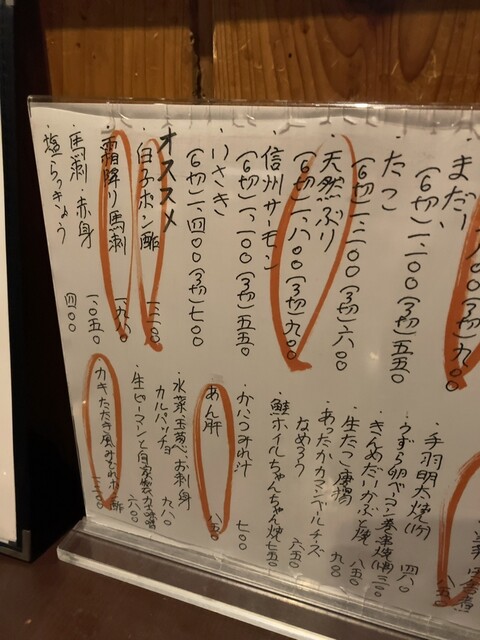 ・まだい
(6切)
(3切)九〇〇
・たこ
(6切)一、一〇〇(3切)五五〇
・天然ぶり
(6切)一、二〇〇(3切)六〇〇
・信州サーモン
(6切)一、八〇〇(3切)九〇〇
・いさき
(6切)一、一〇〇(3切)五五〇
(6切)一、四〇〇(3切)七〇〇
オススメ
・白子ポン酢 一、二〇〇
・霜降り馬刺
・馬刺・赤身 一、〇五〇
・塩らっきょう 四〇〇
・手羽明太焼
・うずら卵ベーコン巻串焼
・きんめだいかぶと焼 八五〇
・生たこ唐揚 九〇〇
・あったかカマンベールチーズ
・なめろう 六五〇
・鮭ホイルちゃんちゃん焼 七五〇
・かにつみれ汁 七〇〇
・あん肝 八五〇
・水菜、玉葱、お刺身
カルパッチョ 九八〇
・生ピーマンと自家製 六〇〇
・カキたたき風みぞれポン酢